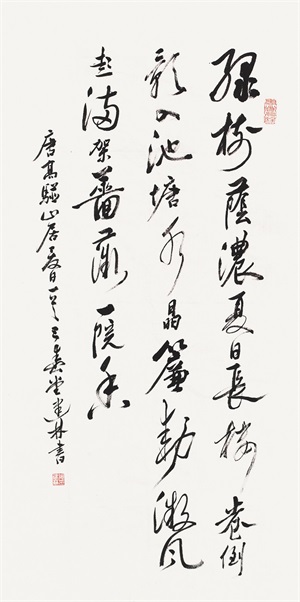 綠樹蔭濃夏日長樓臺倒
影入池塘水晶簾動微風
起滿架薔薇一院香
唐高駢山居夏日一 堂建林書